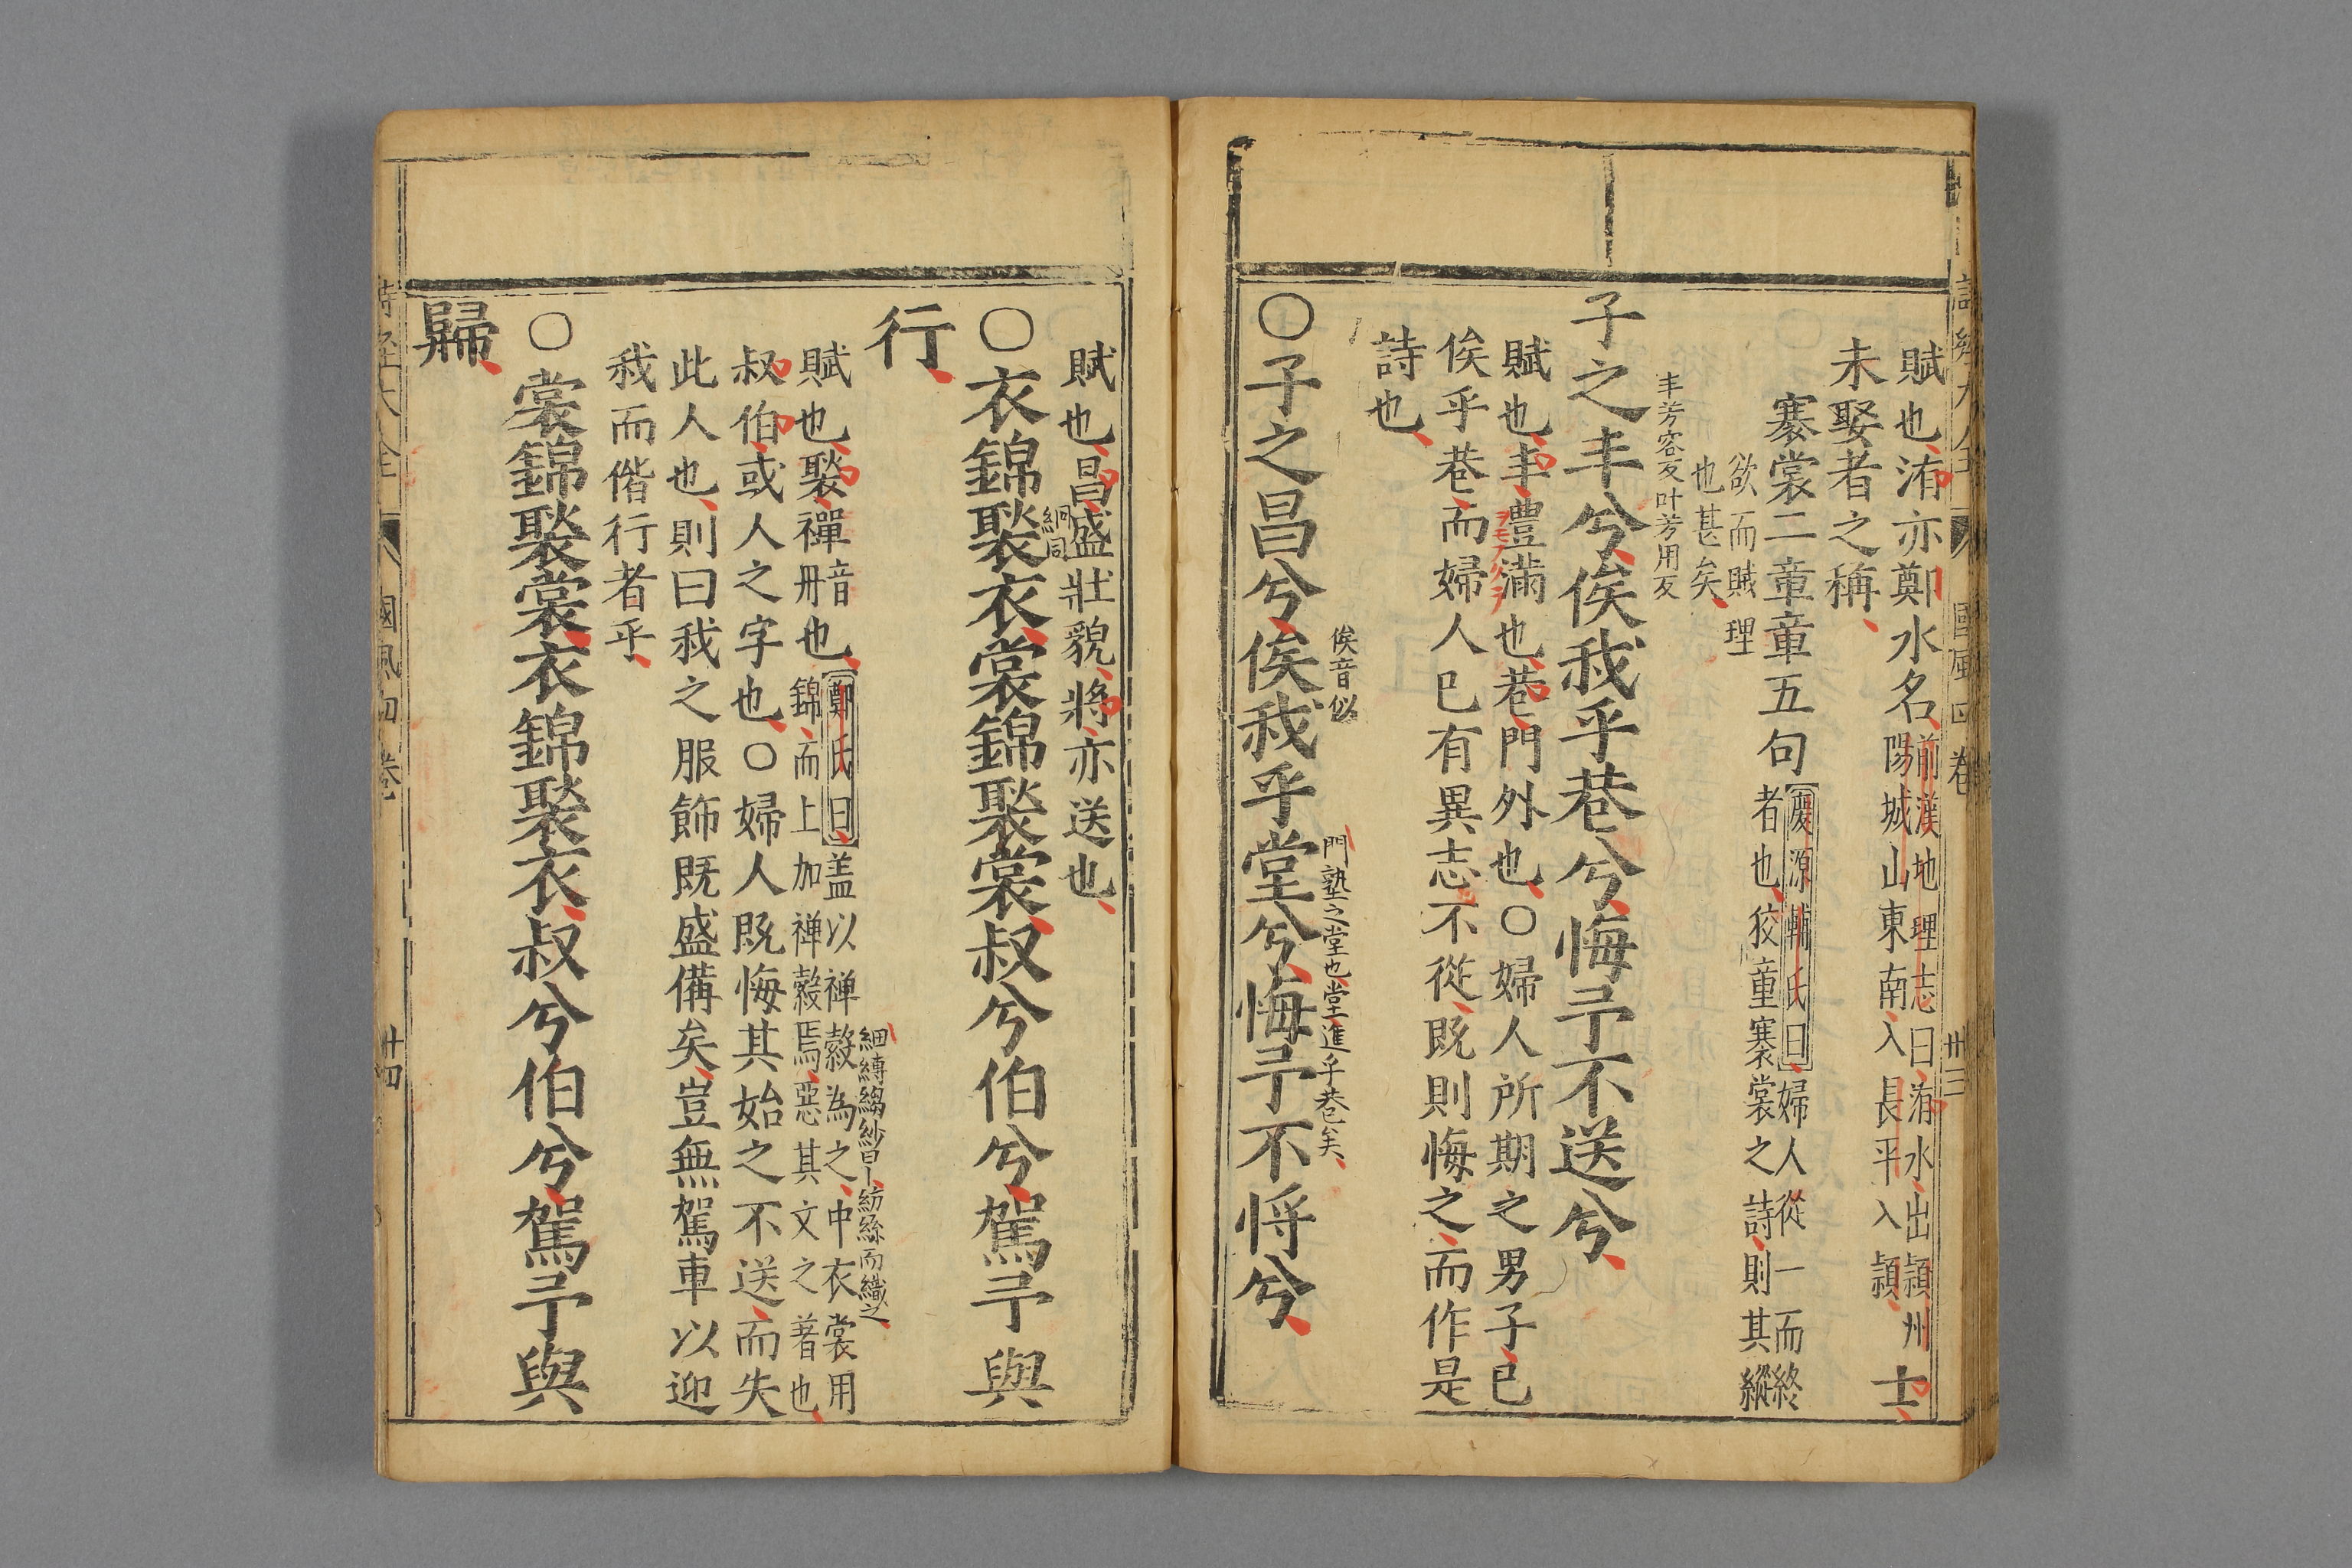 詩經大全 國風四卷 卅三
賦也洧亦鄭水名前漢地理志曰洧水出頴州陽城山東南入長平入頴士
未娶者之稱
褰裳二章章五句慶源輔氏曰婦人從一而終者也狡童褰裳之詩則其縱
欲而賊理也甚矣
丰芳容反叶芳用反
子之丰兮俟我乎巷兮悔予不送兮
賦也丰豊滿也巷門外也○婦人所期之男子已
俟乎巷而婦人已有異志不從既則悔之而作是
詩也
俟音似
門塾之堂也堂進乎巷矣
○子之昌兮俟我乎堂兮悔予不将兮
賦也昌盛壯貌將亦送也
絅同
○衣錦褧衣裳錦褧裳叔兮伯兮駕予與
行
細縳縐紗曰 紡絲而織之
賦也褧禪音丹也鄭氏曰盖以禅縠為之中衣裳用錦而上加禅縠焉惡其文之著也
叔伯或人之字也○婦人既悔其始之不送而失
此人也則曰我之服飾既盛備矣豈無駕車以迎
我而偕行者乎
○裳錦褧裳衣錦褧衣叔兮伯兮駕予與
歸
詩經大全 國風四卷 卅四